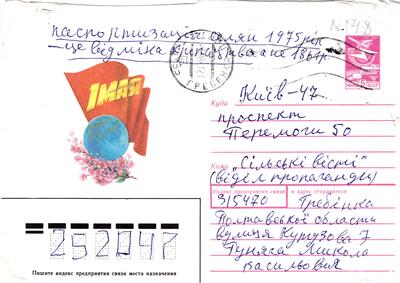 № 1748
паспортизація селян 1975 рік
— це відміна кріпацтва а не 1861 р.
ГРЕБЕН
1 МАЯ
Куда
Київ - 47
проспект
Перемоги 50
Кому
"Сільські вісті"
(відділ пропаганди)
Индекс предприятия связи и адрес отправителя
315470
Гребінка
Полтавської області
вулиця Кутузова 7
Гуняга Микола
Васильович
252047
Пишите индекс предприятия связи места назначения